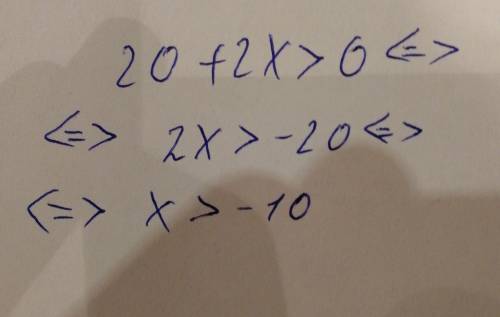 20 + 2x > 0 <=>
<=> 2x > -20 <=>
<=> x > -10